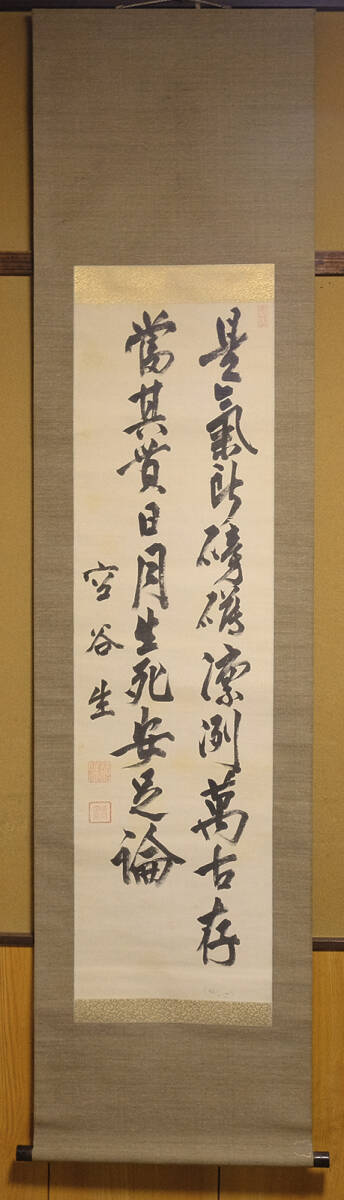 是氣所磅礴凛洌萬古存
當其貫日月生死安足論
空谷生